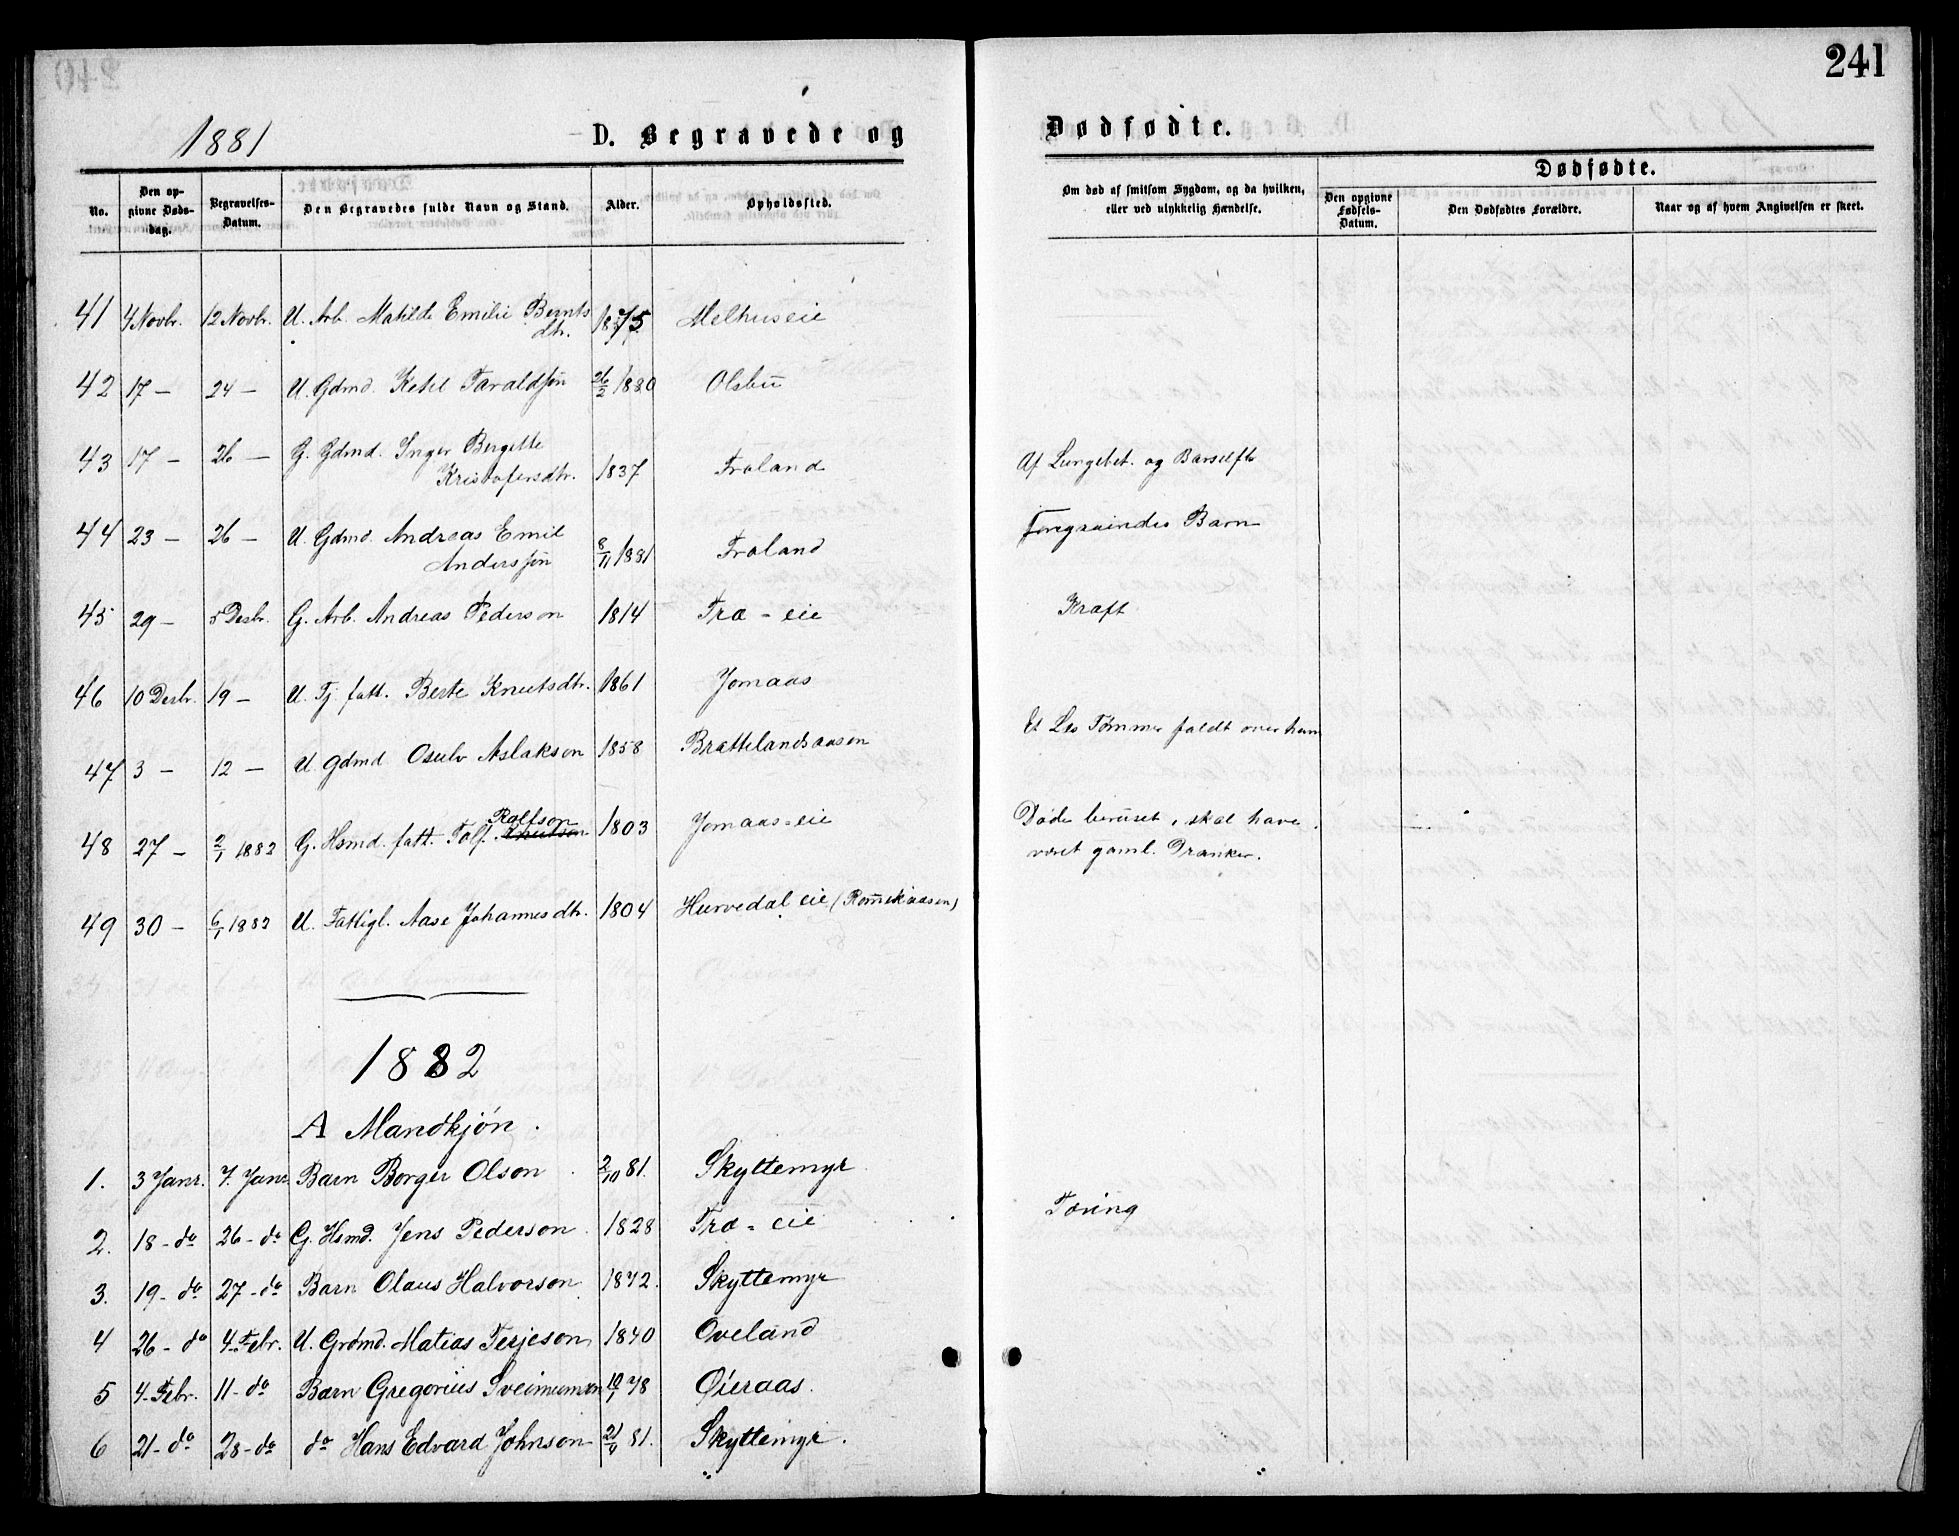 241
1881
D. Begravede og Dødfødte.
No.
Den opgivne Dødsdag.
Begravelses-Datum.
Den Begravedes fulde Navn og Stand.
Alder.
Opholdssted.
Om død af smitsom Sygdom, og da hvilken, eller ved ulykkelig Hændelse.
Dødfødte.
Den opgivne Fødsels-Datum.
Den Dødfødtes Forældre.
Naar og af hvem Angivelsen er skeet.
41 4 Novbr. 12 Novbr. U. Arb. Matilde Emilie Bernts dtr. 1875 Melhuseie
42 17 — 24 — U. Gdmd. Ketil Taraldsøn 26/2 1880 Olsbu
43 17 — 26 — G. Gdmd. Inger Bergitte Kristofersdtr. 1837 Froland Af Lungebet. og Barselfb
44 23 — 26 — U. Gdmd. Andreas Emil Anderssøn 8/11 1881 Froland Foregaaendes Barn
45 29 — 5 Desbr. G. Arb. Andreas Pederson 1814 Fra - eie Kræft
46 10 Desbr. 19 — U. Tj. fatt. Berte Knutsdtr. 1861 Jomaas
47 3 — 12 — U. Gdmd Osulv Aslakson 1858 Brattelandsaasen Et Læs Tømmer faldt over ham
48 27 — 2/1 1882 G. Hsmd. fatt. Tolf. Knutson Rolfson 1803 Jomaas-eie Døde beruset, skal have været gaml. Dranker.
49 30 — 6/1 1882 U. Fattigl. Aase Johannesdtr. 1804 Hurvedal eie
1882
A Mandkjøn.
1. 3 Janr. 7. Janr Barn Borger Olson 2/10 81. Skyttemyr
2. 18 - do 26 - do G. Hsmd. Jens Pederson 1828 Fra - eie Tæring
3. 19 - do 27 - do Barn Olaus Halvorson 1872. Skyttemyr
4 26 - do 4. Febr. U. Grdmd. Matias Terjeson 1840 Oveland
5 4. Febr. 11 - do Barn Gregorius Sveinumson 10/1 78 Øieraas.
6 21 - do 28 - do do Hans Edvard Johnson 21/4 81. Skyttemyr.